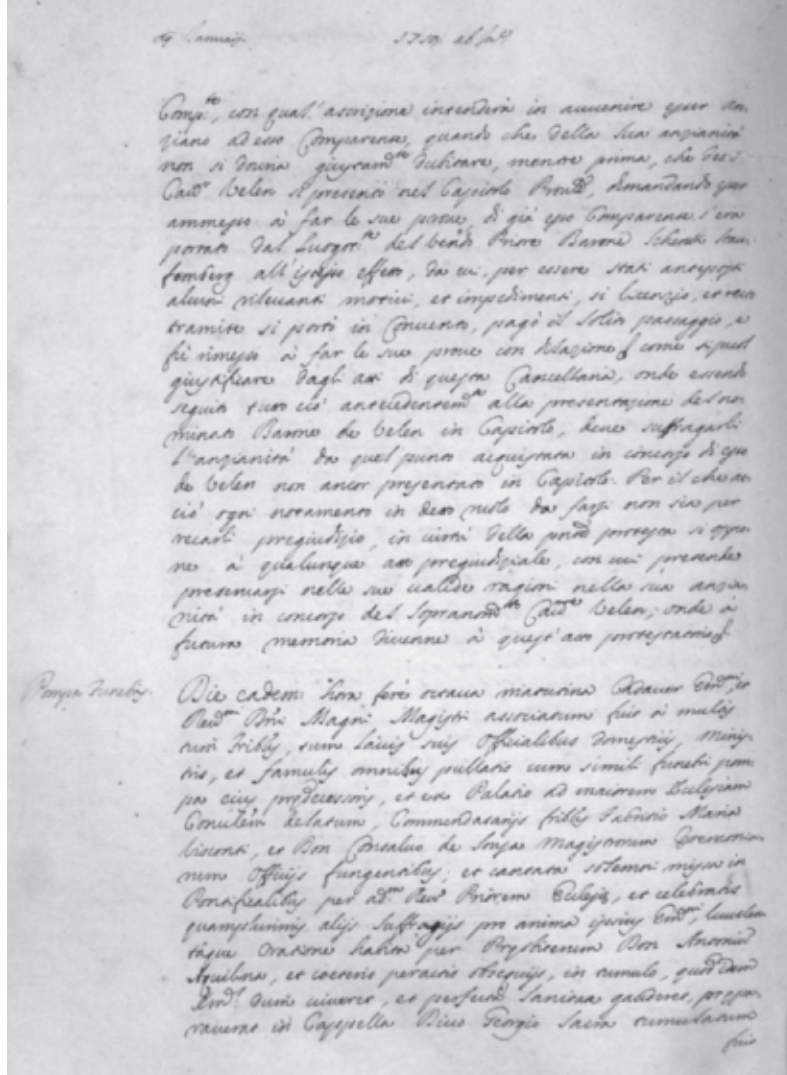 Januarij 1720 ab Inc.
Comp.te, con qual' ascrizione intenderà in avvenire esser an-
ziano ad esso Comparente, quando che della sua anzianità
non si dovria giustam.te dubitare, mentre prima, che
Cav.r Velen si presentò nel Capitolo Prov.le, dimandando esser
ammesso à far le sue prove, di già esso Comparente s'era
portato dal Luogot.te del Priore Barone Schenk Stau-
femberg all'istesso effetto, da cui, per essere stati antiposti
alcuni rilevanti motivi, et impedimenti, si licenziò, et recto
tramite si portò in Convento, pagò il solito passaggio, e
fù rimesso à far le sue prove con dilazione come si può
giustificare dagli atti di questa Cancellaria, onde essendo
seguito tutto ciò antecedentem.te alla presentazione del no-
minato Barone de Velen in Capitolo, deve suffragarli
l'anzianità da quel punto acquistata in concorso di esso
de Velen non ancor presentato in Capitolo. Per il che ac-
ciò ogni notamento in detto ruolo da farsi non sia per
recarli pregiudizio, in virtù della protesta si oppo-
ne à qualunque atto pregiudiziale, con cui pretende
preservarsi nelle sue valide ragioni nella sua anzia-
nità in concorso del sopranom.to Cav.re Velen; onde à
futura memoria divenne à quest'atto protestatorio
Pompa Funebris. Die eadem hora ferè octava matutina Cadaver Em.mi, et
Rev.mi Dni Magni Magistri associatum fuit à multis
fribus, cum suis Officialibus domesticis, minis-
tris, et famulis omnibus pullatis cum simili funebri pom-
pa eius predecessoris, et ex Palatio ad maiorem Ecclesiam
delatum, Commendatarijs fribus Fabritio Maria
Visconti, et Don Consaluo de Magistrorum Ceremonia-
rum Officijs fungentibus; et cantata solemni missa in
Pontificalibus per ad. Rev. Priorem Ecclesiæ, et celebratis
quamplurimis alijs suffragijs pro anima ipsius Em.mi, luculen-
tâque Oratione habita per Presbiterum Don Antonium
Aquilina, et coeteris peractis obsequijs, in tumulo, quod
Em.s dum viveret, et perfecta sanitate gauderet, prepa-
raverat in Cappella Divo Georgio sacra tumulatum
fuit